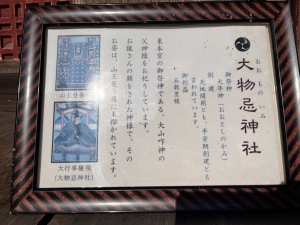 大物忌神社
おおものいみ
御祭神
大年神（おおとしのかみ）
創建
天地開闢とも、平安期創建とも
言われています。
御利益
五穀豊穣
東本宮の御祭神である、大山咋神の
父神様をお祀りしています。
お猿さんの顔をされた神様で、その
お姿は、山王曼荼羅にも描かれています。
大行事権現
(大物忌神社)